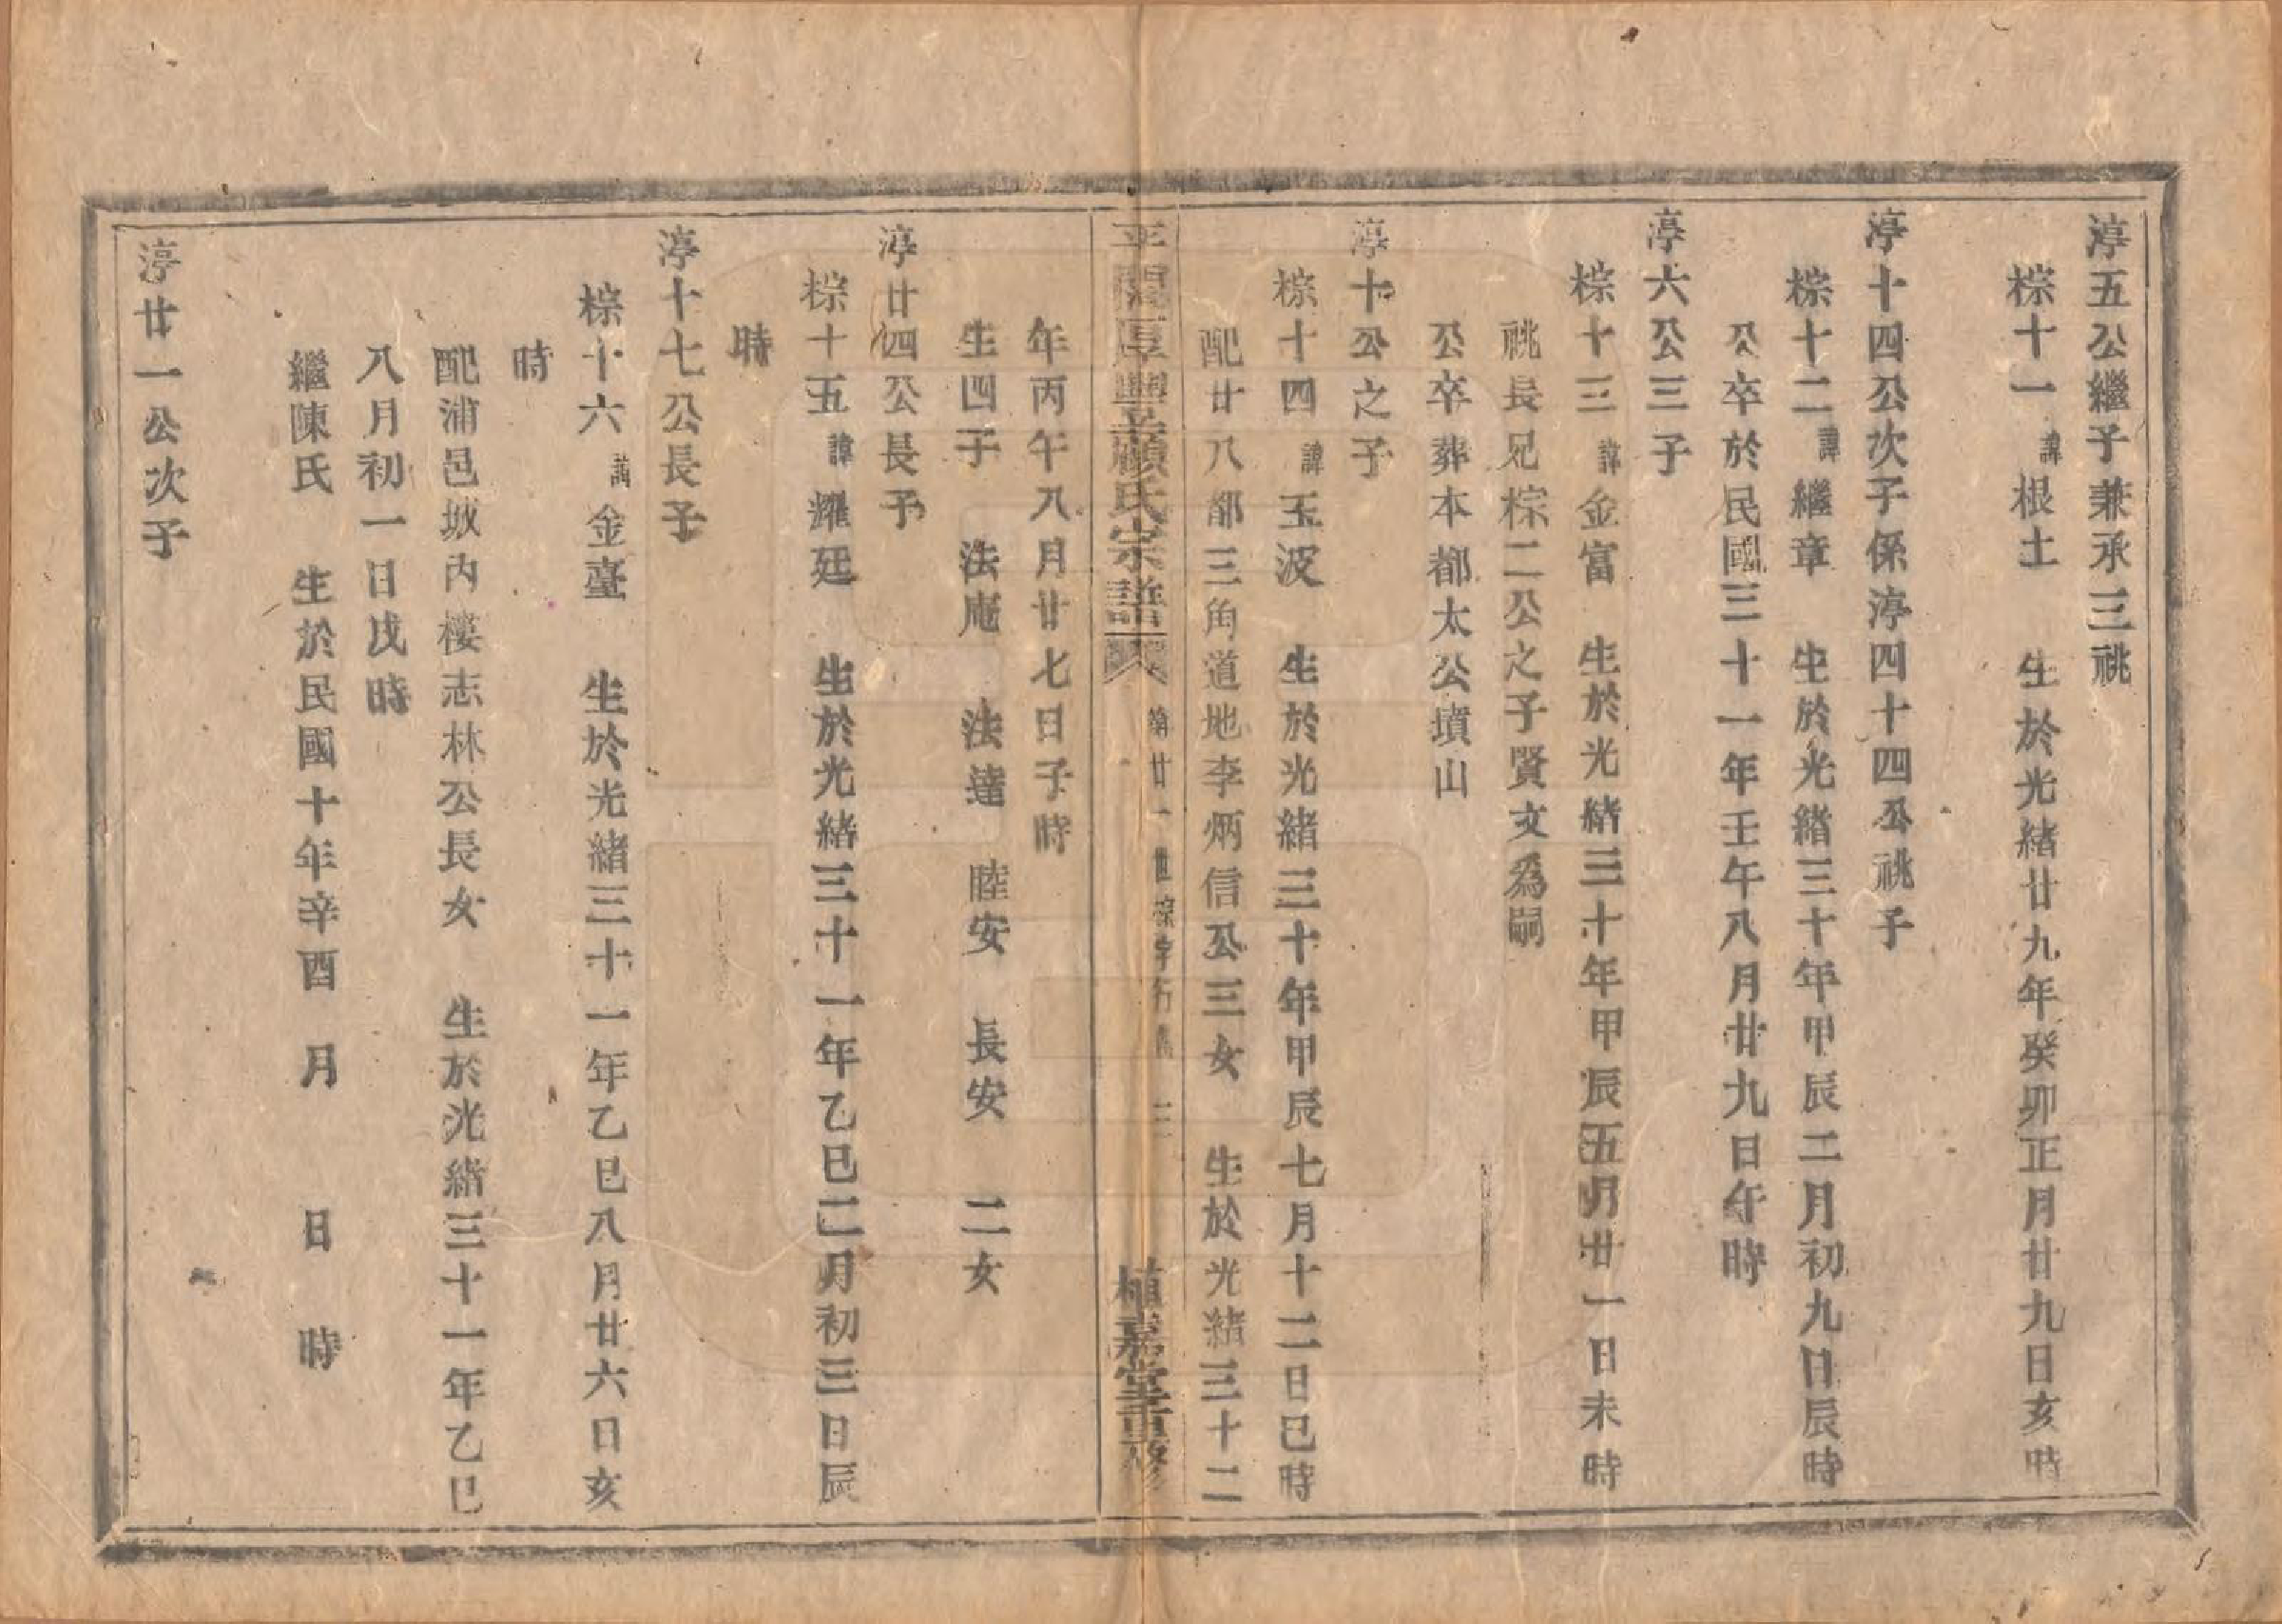 淳五公繼子兼承三祧
棕十一 諱 根土 生於光緒廿九年癸卯正月廿九日亥時
淳十四公次子係淳四十四公祧子
棕十二 諱 繼章 生於光緒三十年甲辰二月初九日辰時
公卒於民國三十一年壬午八月廿九日午時
淳六公三子
棕十三 諱 金富 生於光緒三十年甲辰五月廿一日未時
祧長兄棕二公之子賢文為嗣
公卒葬本都太公墳山
淳十公之子
棕十四 諱 玉波 生於光緒三十年甲辰七月十二日巳時
配廿八都三角道地李炳信公三女 生於光緒三十二
厚豐 顧氏宗譜 廿一世棕字行傳 三 植嘉堂重修
年丙午八月廿七日子時
生四子 法庵 法達 睦安 長安 二女
淳廿四公長子
棕十五 諱 耀廷 生於光緒三十一年乙巳二月初三日辰
時
淳十七公長子
棕十六 諱 金臺 生於光緒三十一年乙巳八月廿六日亥
時
配浦邑坡內樓志林公長女 生於光緒三十一年乙巳
八月初一日戌時
繼陳氏 生於民國十年辛酉 月 日 時
淳廿一公次子